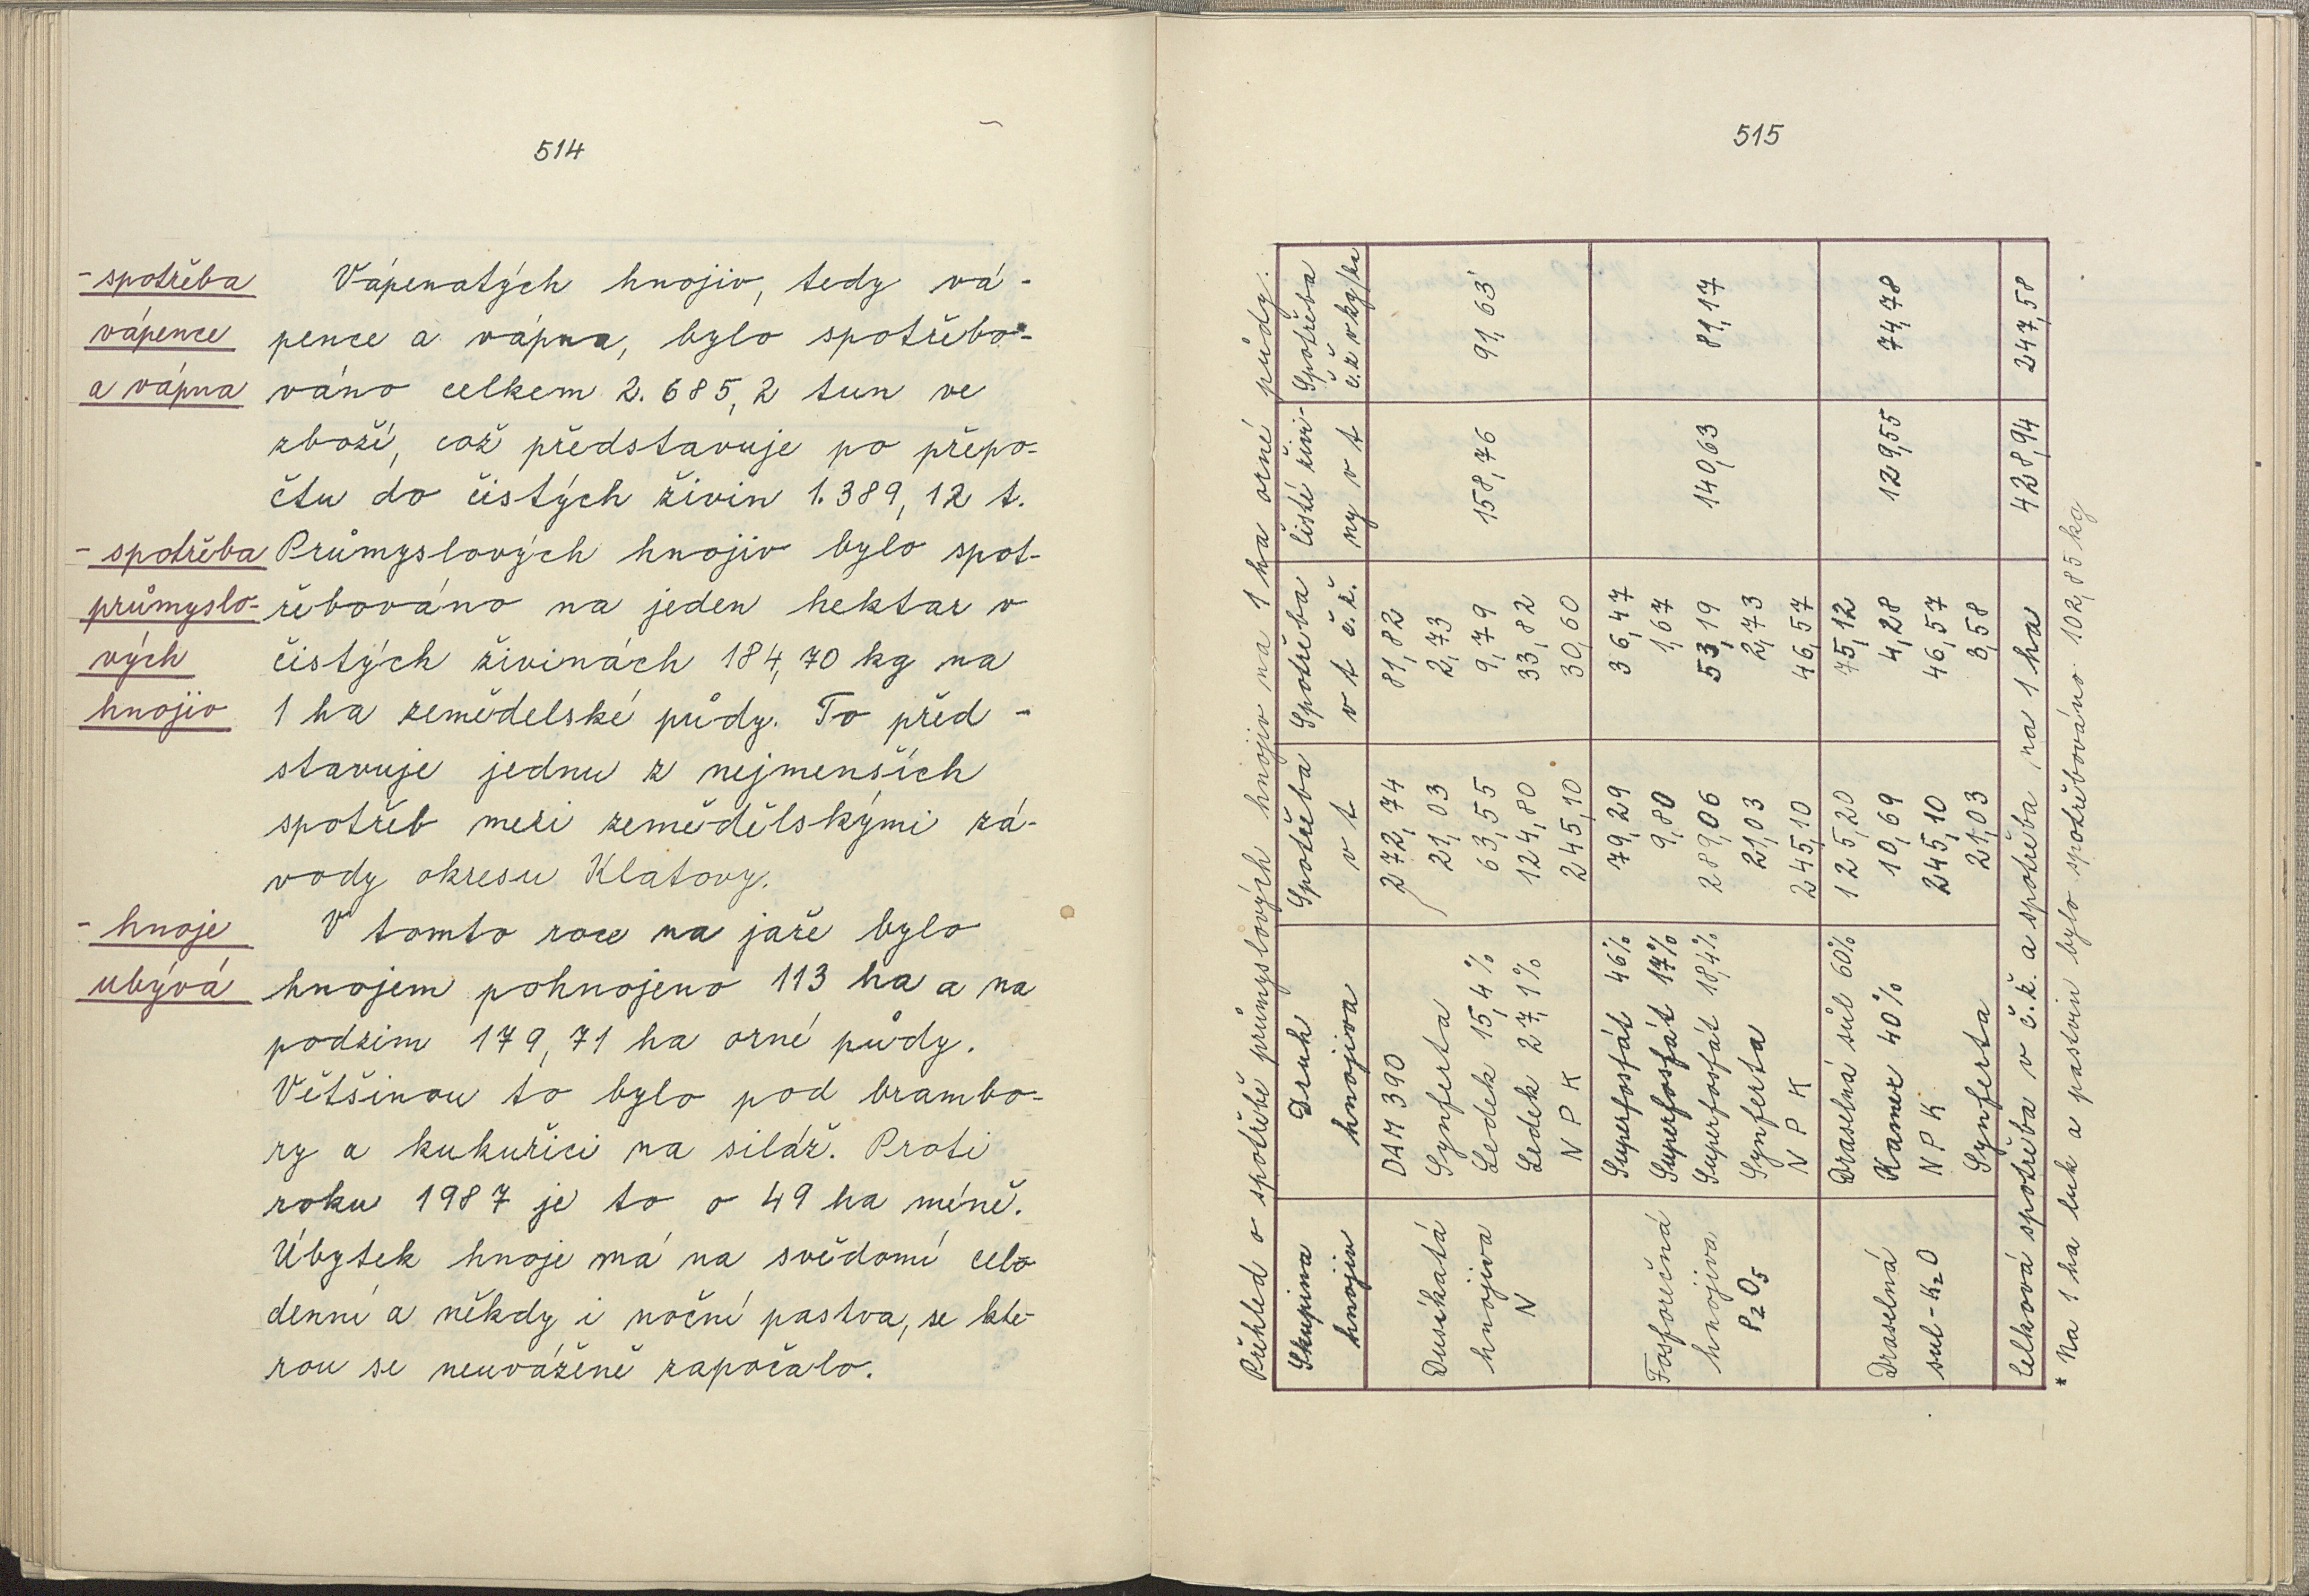 514
- spotřeba
vápence
a vápna
Vápenatých hnojiv, tedy vá-
pence a vápna, bylo spotřebo-
váno celkem 2.685,2 tun ve
zboží, což představuje po přepo-
čtu do čistých živin 1.389,12 t.
- spotřeba
průmyslo-
vých
hnojiv
Průmyslových hnojiv bylo spot-
řebováno na jeden hektar v
čistých živinách 184,70 kg na
1 ha zemědelské půdy. To před-
stavuje jednu z nejmenších
spotřeb mezi zemědělskými zá-
vody okresu Klatovy.
- hnoje
ubývá
V tomto roce na jaře bylo
hnojem pohnojeno 113 ha a na
podzim 179,71 ha orné půdy.
Většinou to bylo pod brambo-
ry a kukuřici na siláž. Proti
roku 1987 je to o 49 ha méně.
Úbytek hnoje má na svědomí celo
denní a někdy i noční pastva, se kte-
rou se neuváženě započalo.
515
Přehled o spotřebě průmyslových hnojiv na 1 ha orné půdy.
Skupina hnojiv | Druh hnojiva | Spotřeba v t | Spotřeba v t č.ž. | čisté živi- ny v t | Spotřeba č.ž v kg/ha
Dusíkatá hnojiva N | DAM 390 | 272,74 | 81,82 | 158,76 | 91,63
Synferta | 21,03 | 2,73
Ledek 15,4% | 63,55 | 9,79
Ledek 27,1% | 124,80 | 33,82
N P K | 245,10 | 30,60
Fosforečná hnojiva P₂O₅ | Superfosfát 46% | 79,29 | 36,47 | 140,63 | 81,17
Superfosfát 17% | 9,80 | 1,67
Superfosfát 18,4% | 289,06 | 53,19
Synferta | 21,03 | 2,73
N P K | 245,10 | 46,57
Draselná sul - K₂O | Draselná sůl 60% | 125,20 | 75,12 | 129,55 | 74,78
Kamex 40% | 10,69 | 4,28
N P K | 245,10 | 46,57
Synferta | 21,03 | 3,58
Celková spotřeba v č.ž. a spotřeba na 1 ha | 428,94 | 247,58
* Na 1 ha luk a pastvin bylo spotřebováno 102,85 kg